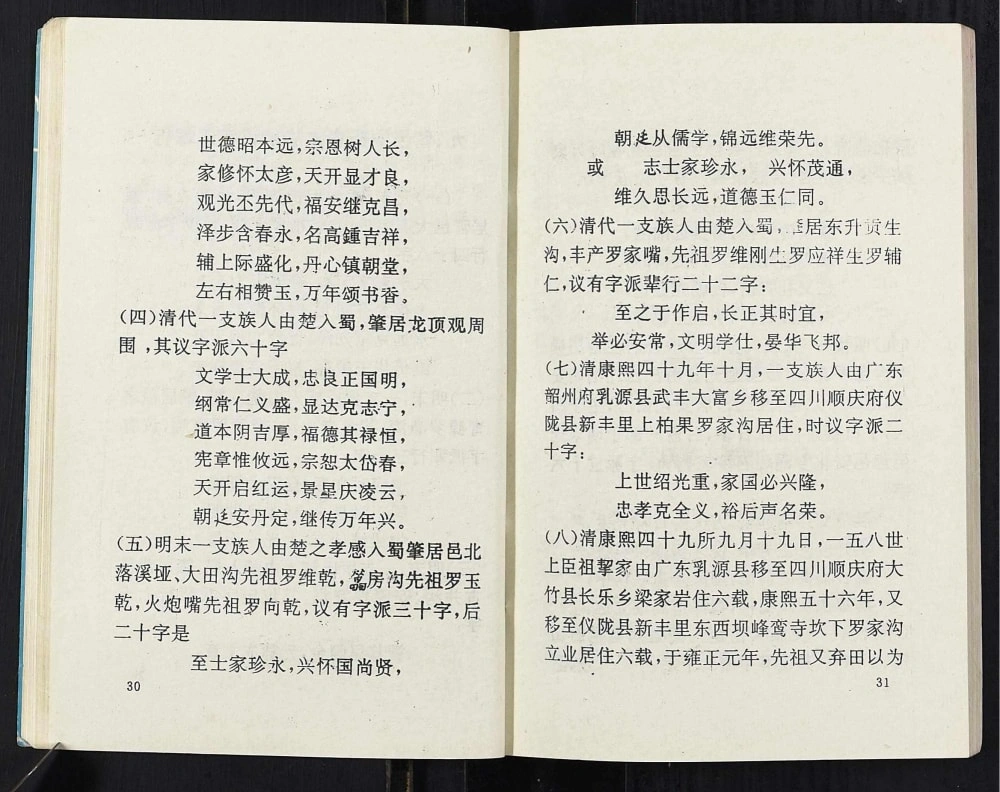 世德昭本远，宗恩树人长，
家修怀太彦，天开显才良，
观光丕先代，福安继克昌，
泽步含春永，名高鍾吉祥，
辅上际盛化，丹心镇朝堂，
左右相赞玉，万年颂书香。
(四)清代一支族人由楚入蜀，肇居龙顶观周
围，其议字派六十字
文学士大成，忠良正国明，
纲常仁义盛，显达克志宁，
道本阴吉厚，福德其禄恒，
宪章惟攸远，宗恕太岱春，
天开启红运，景星庆凌云，
朝廷安丹定，继传万年兴。
(五)明末一支族人由楚之孝感入蜀肇居邑北
落溪垭、大田沟先祖罗维乾，房沟先祖罗玉
乾，火炮嘴先祖罗向乾，议有字派三十字，后
二十字是
至士家珍永，兴怀国尚贤，
30
朝廷从儒学，锦远维荣先。
或 志士家珍永， 兴怀茂通，
维久思长远，道德玉仁同。
(六)清代一支族人由楚入蜀，居东升贡生
沟，丰产罗家嘴，先祖罗维刚生罗应祥生罗辅
仁，议有字派辈行二十二字：
至之于作启，长正其时宜，
举必安常，文明学仕，晏华飞邦。
(七)清康熙四十九年十月，一支族人由广东
韶州府乳源县武丰大富乡移至四川顺庆府仪
陇县新丰里上柏果罗家沟居住，时议字派二
十字：
上世绍光重，家国必兴隆，
忠孝克全义，裕后声名荣。
(八)清康熙四十九所九月十九日，一五八世
上臣祖挈家由广东乳源县移至四川顺庆府大
竹县长乐乡梁家岩住六载，康熙五十六年，又
移至仪陇县新丰里东西坝峰鸾寺坎下罗家沟
立业居住六载，于雍正元年，先祖又弃田以为
31